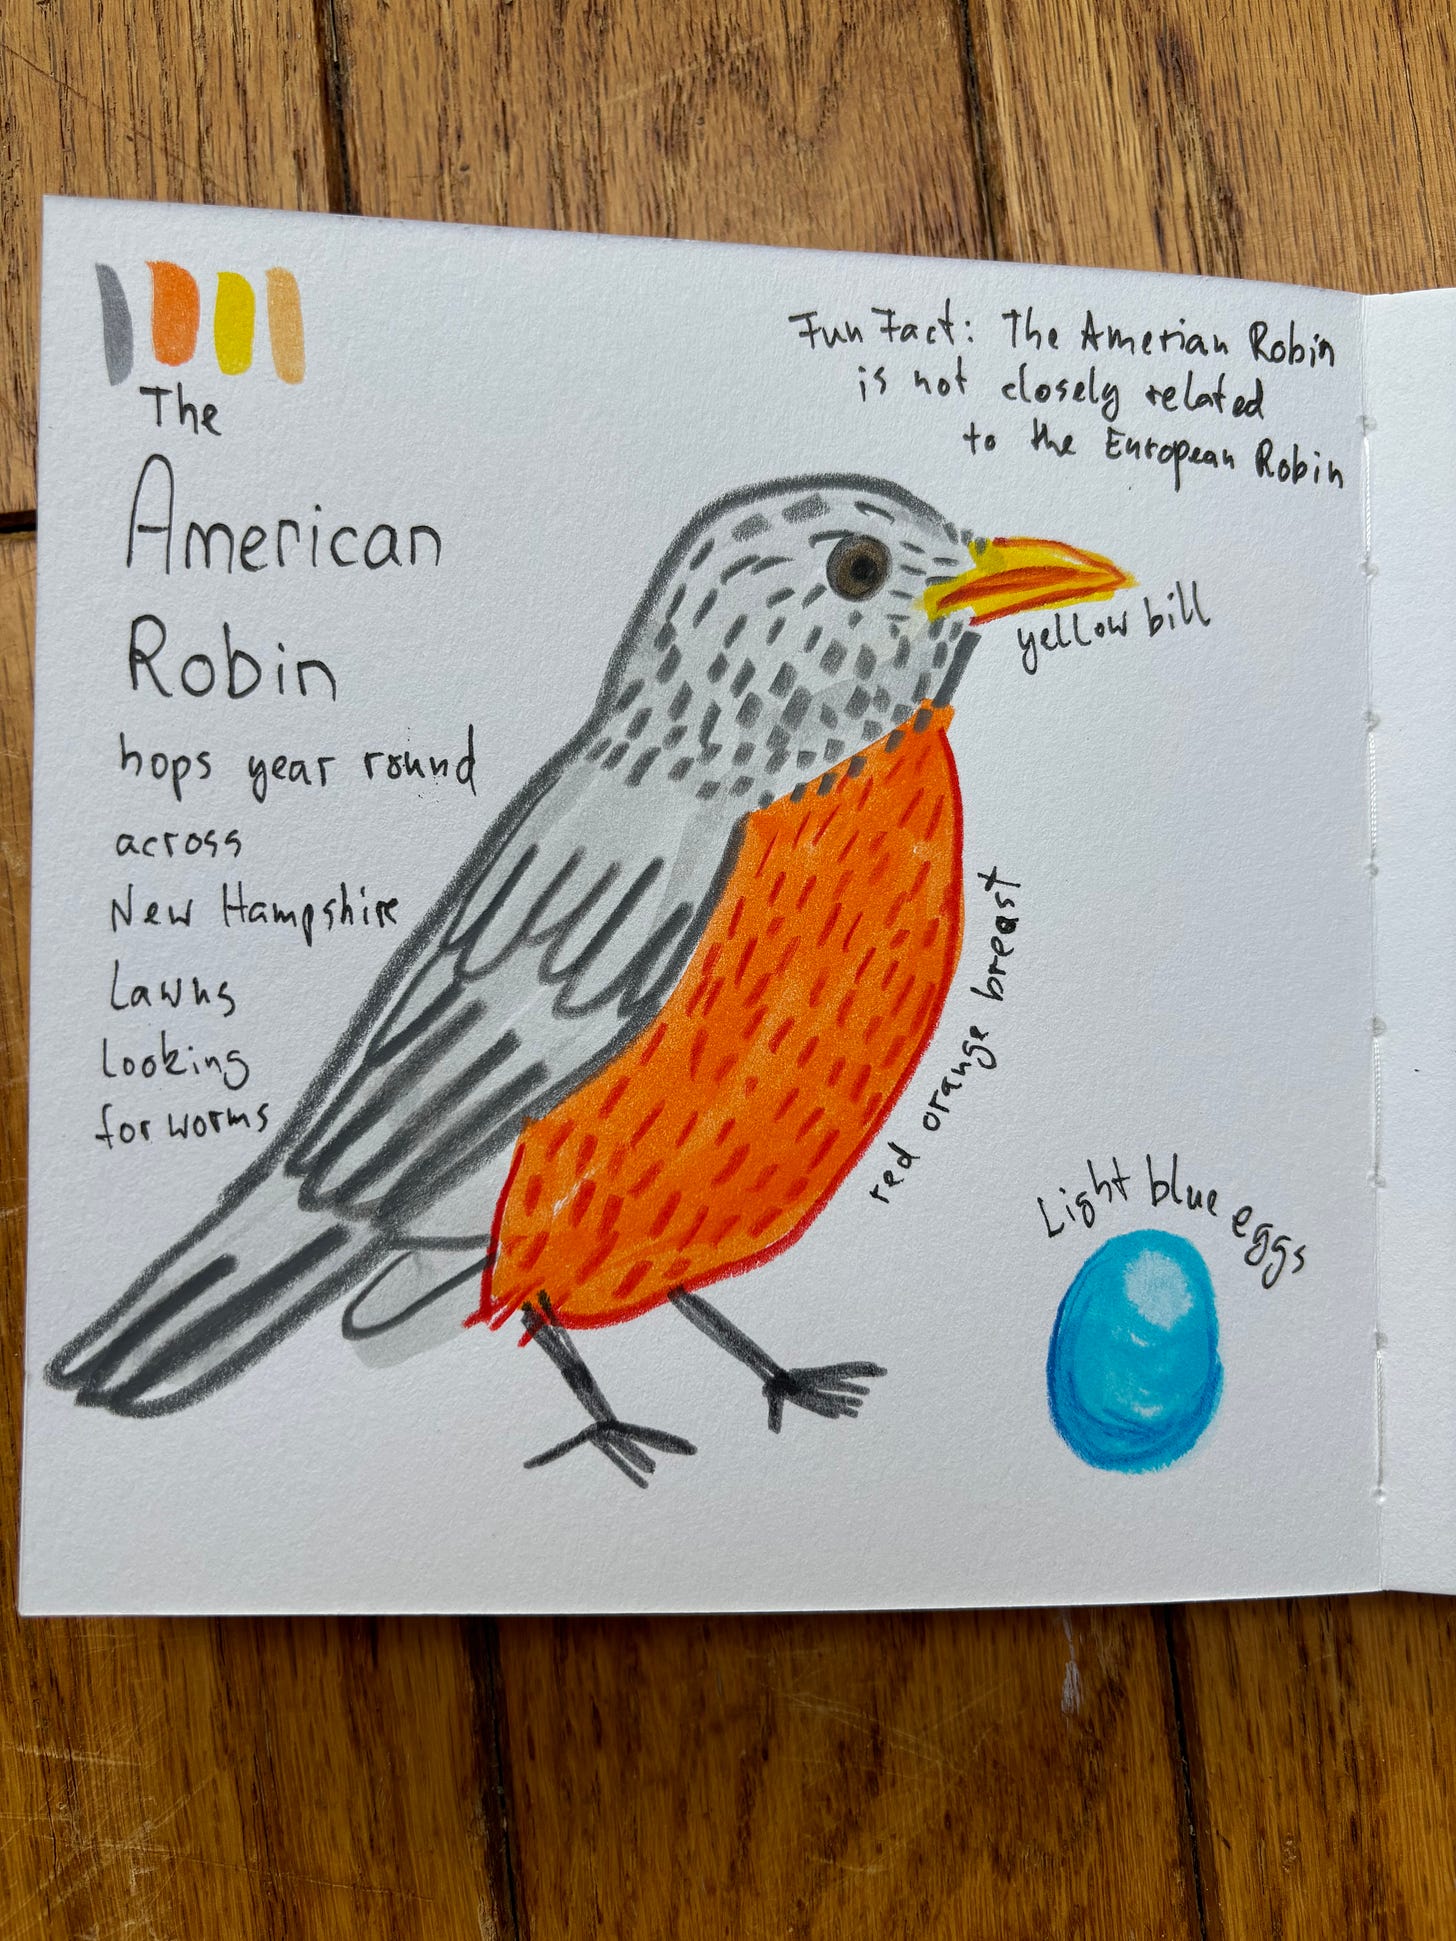 The
American
Robin
hops year round
across
New Hampshire
Lawns
Looking
for worms
Fun Fact: The Amerian Robin
is not closely related
to the European Robin
yellow bill
red orange breast
Light blue eggs